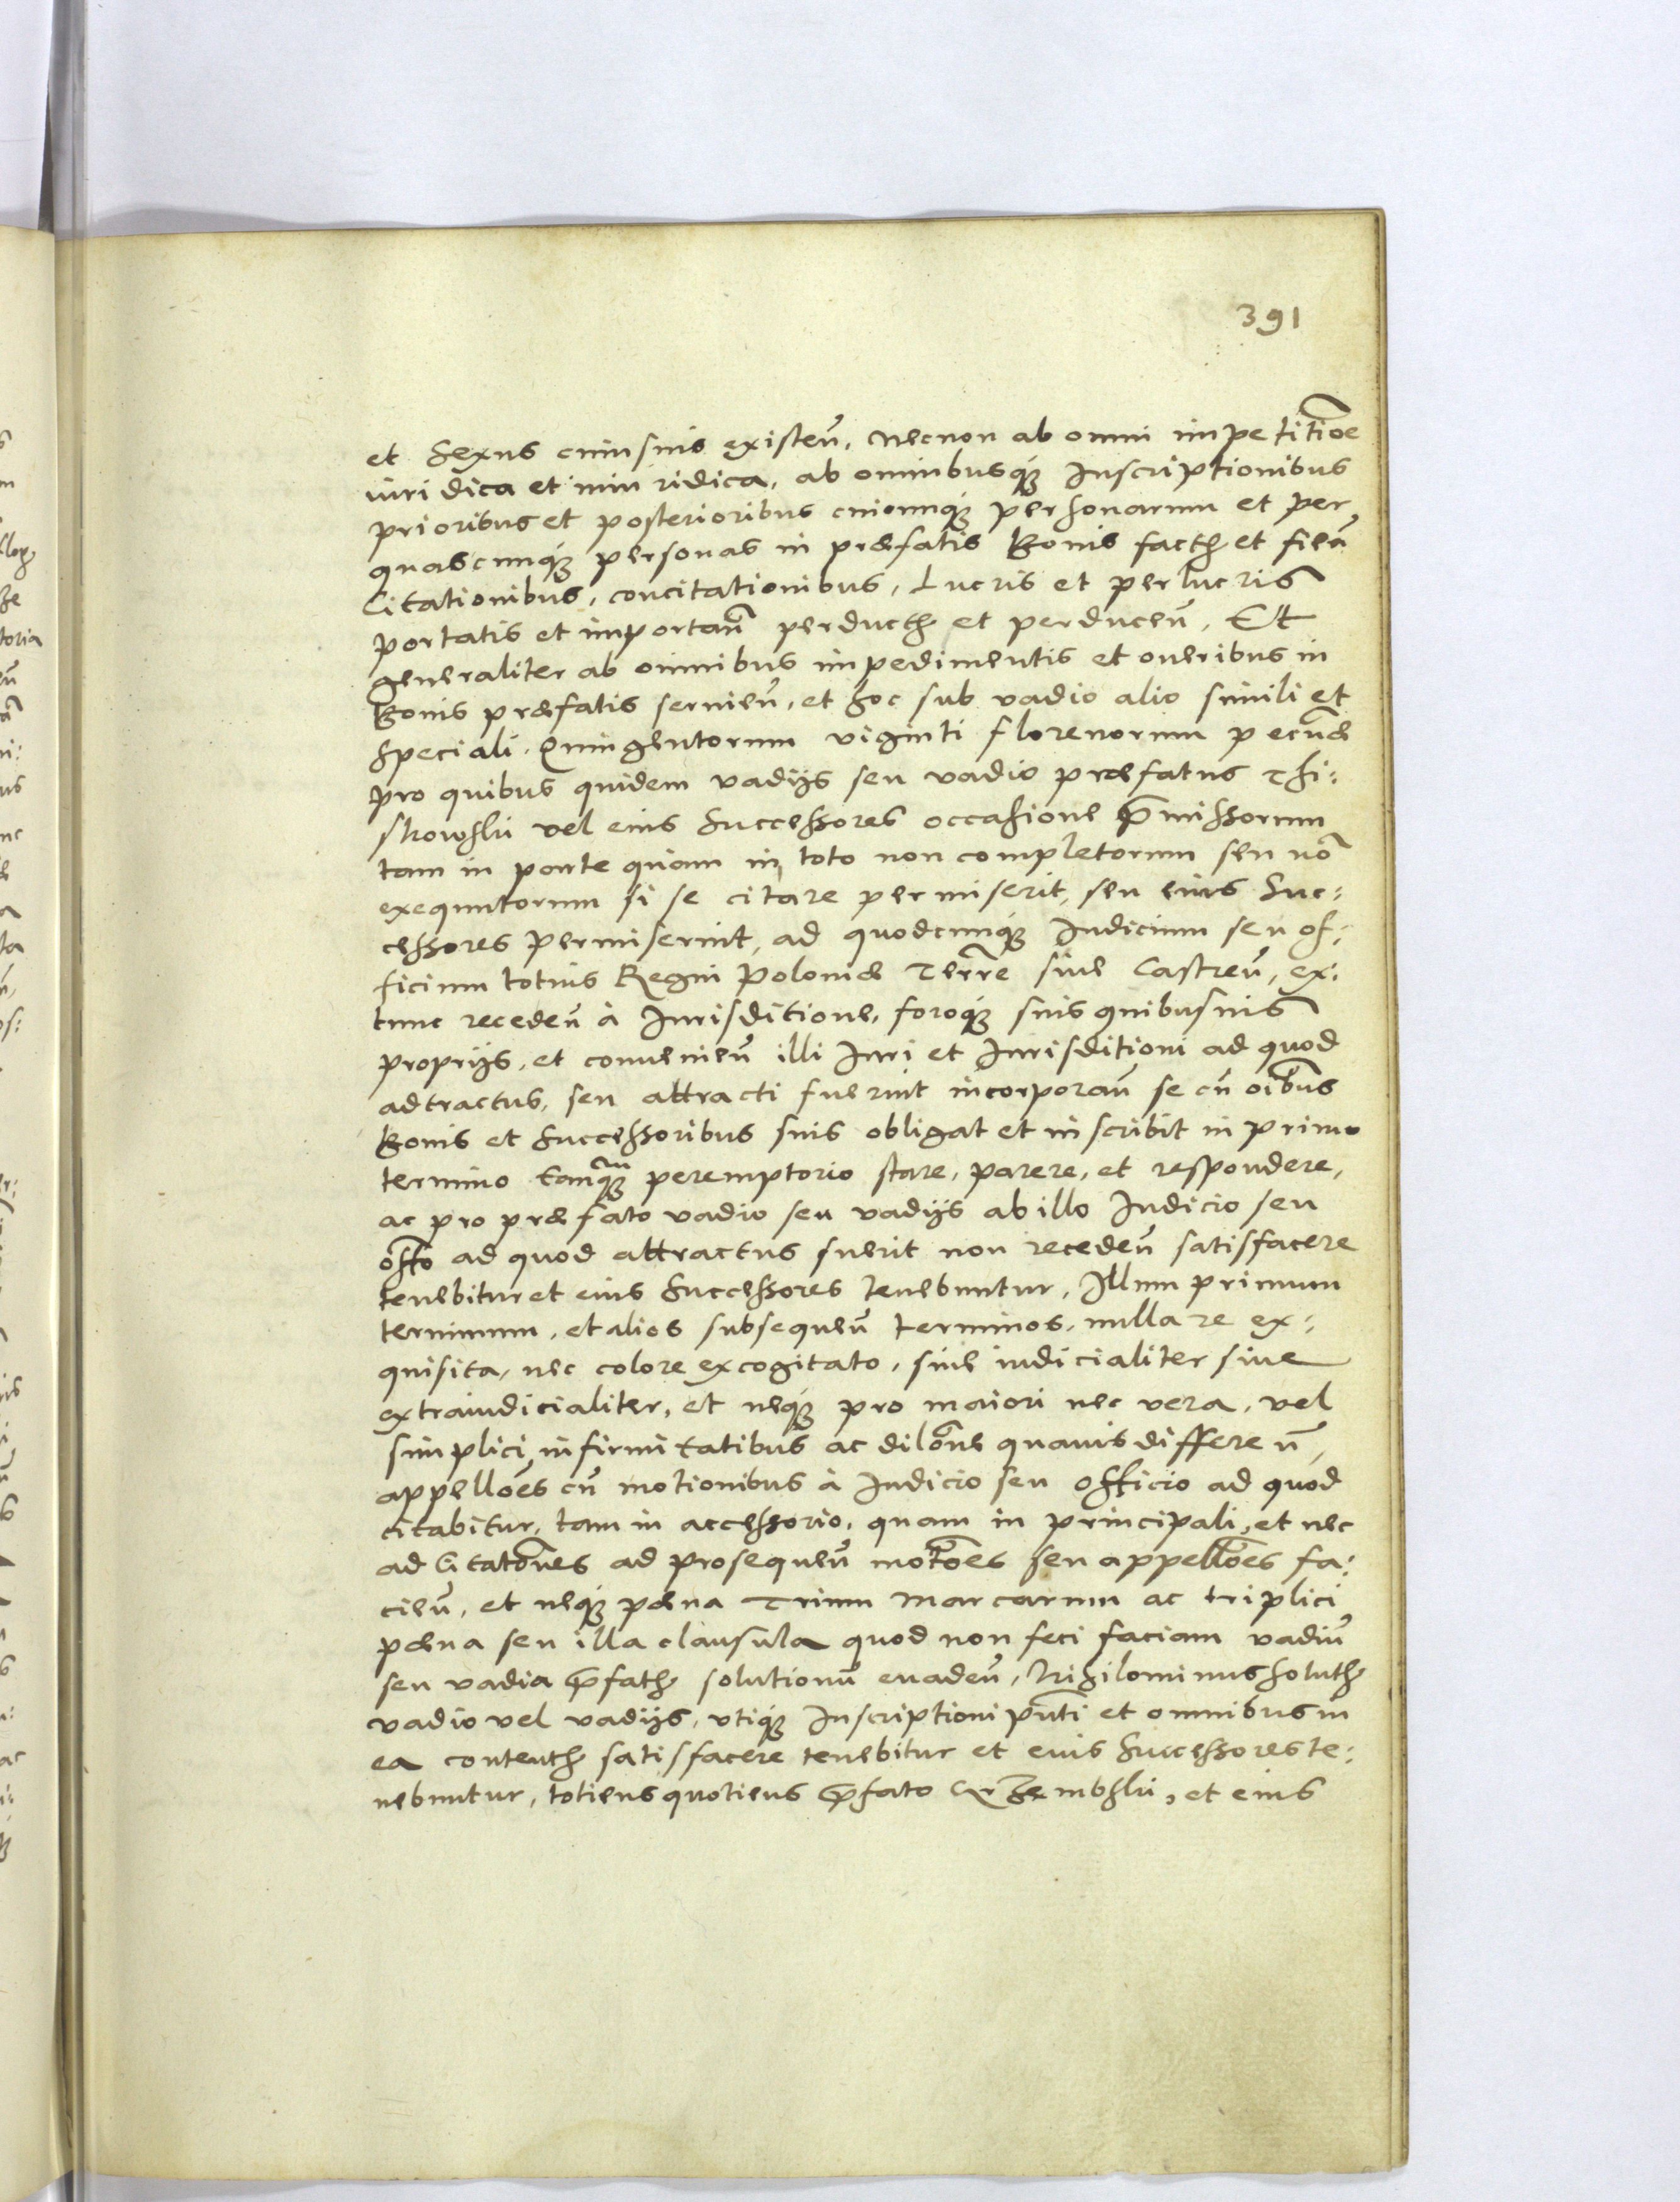 391
et Sexus cuiusuis existeñ, necnon ab omni impetitiõe
iuridica et iniuridica, ab omnibusq́ꝫ Inscriptionibus
prioribus et posterioribus cuicunq́ꝫ personarum et per
quascunq́ꝫ personas in præfatis Bonis facth et fieñ
Citationibus, concitationibus, Lucris et perlucris
portatis et importañ perducth et perduceñ, Et
generaliter ab omnibus impedimentis et oneribus in
Bonis præfatis servieñ, et hoc sub vadio alio simili et
speciali Quingentorum viginti florenorum pecuñæ
pro quibus quidem vadijs seu vadio præfatus Thi:
skowskii vel eius Successores occasione p̃missorum
tam in parte quam in toto non completorum seu nõ
exequutorum si se citare permiserit, seu eius Suc:
cessores permiserint, ad quodcunq́ꝫ Iudicium seu of:
ficium totius Regni Poloniæ Terrẽ siue Castreñ, ex:
tunc recedeñ à Iurisditione, foroq́ꝫ suis quibusuis
proprijs, et convenieñ illi Iuri et Iurisditioni ad quod
adtractus, seu attracti fuerint incorporañ se cũ oĩbus
Bonis et Successoribus suis obligat et inscribit in primo
termino tanq́ꝫ peremptorio stare, parere, et respondere,
ac pro præfato vadio seu vadijs ab illo Iudicio seu
offõ ad quod attractus fuerit non recedeñ satisfacere
tenebitur et eius Successores tenebuntur, Illum primum
terminum, et alios subsequeñ terminos, nulla re ex:
quisita, nec colore excogitato, siue iudicialiter siue
extraiudicialiter, et neq́ꝫ pro maiori nec vera, vel
simplici infirmitatibus ac dilõne quauis differeñ,
appellões cũ motionibus à Iudicio seu officio ad quod
citabitur, tam in accessorio, quam in principali, et nec
ad Citatõnes ad prosequeñ motões seu appellões fa:
cieñ, et neq́ꝫ pæna Trium Marcarum ac triplici
pæna seu illa clausula quod non feci faciam vadiũ
seu vadia p̃fath solutionũ euadeñ, Nihilominus soluth
vadio vel vadijs, vtiq́ꝫ Inscriptioni pñti et omnibus in
ea contenth satisfacere tenebitur et euis Successores te:
nebuntur, totiens quotiens p̃fato Krzembskii, et eius